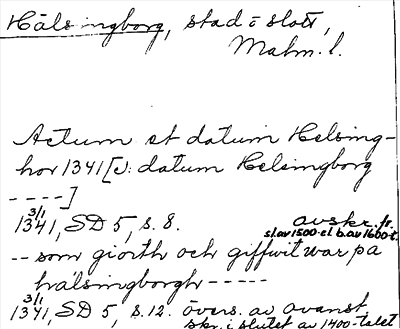 Hälsingborg, stad o slott,
Malm. l.
Actum et datum Helsing-
hor 1341 [J: datum Helsingborg
- - - -]
3/1
1341, SD 5, s. 8. avskr. fr.
slav 1500- el. b. av 1600-t.
-- som giorth och giffwit war pa
hälsingborgh - - - - -
3/1
1341, SD 5, s. 12. övers. av ovanst.
skr. i slutet av 1400-talet